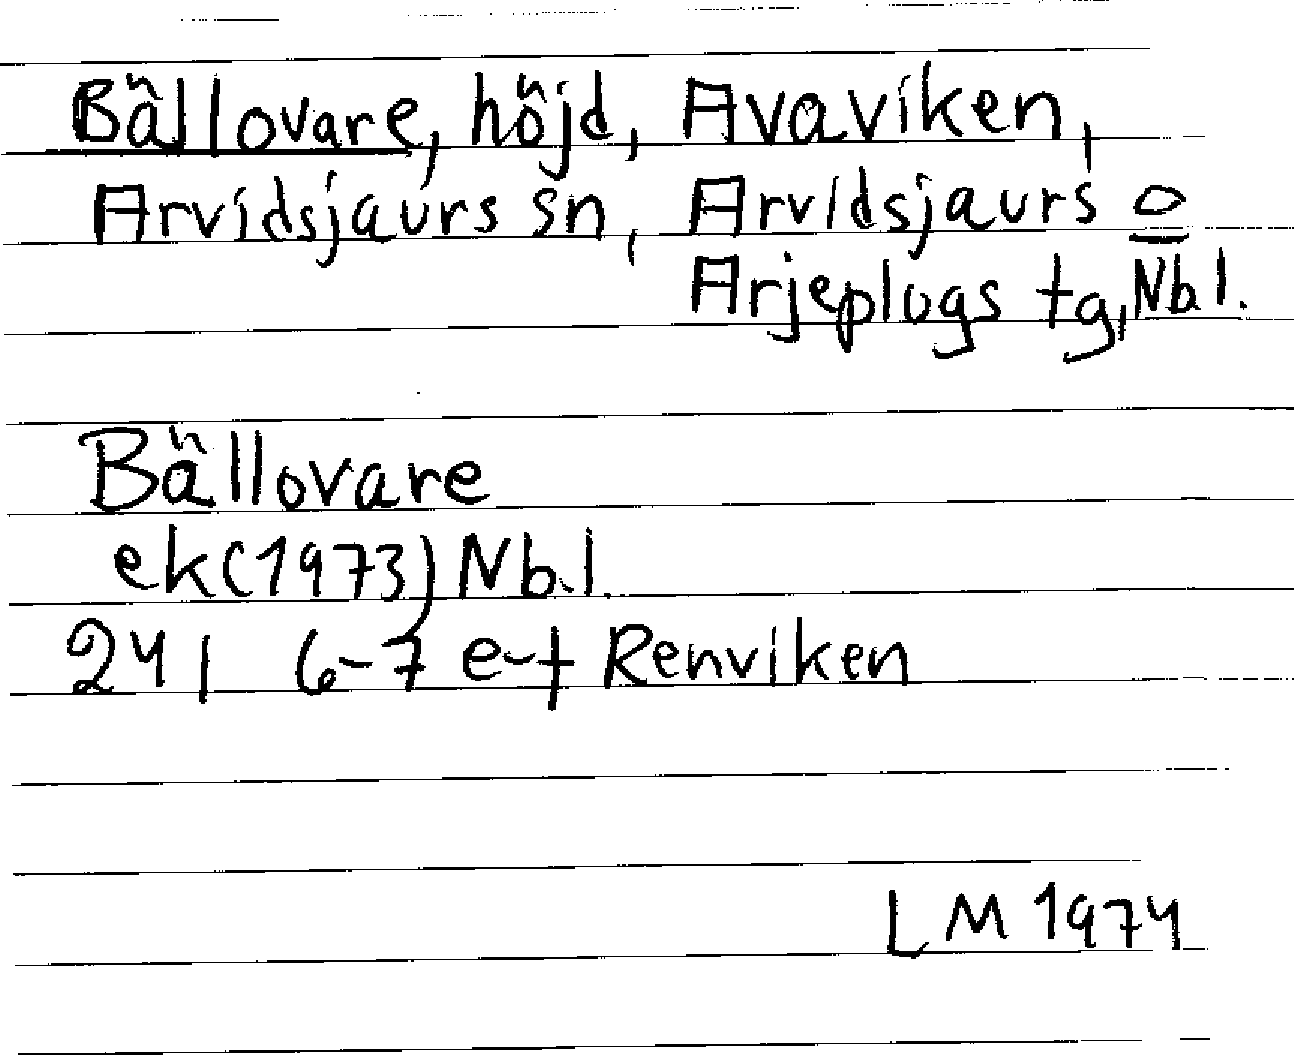 Bällovare, höjd, Avaviken,
Arvidsjaurs sn, Arvidsjaurs o
Arjeplogs tg, Nb.l.
Bällovare
ek (1973) Nb.l.
24 I 6-7 e-f Renviken
LM 1974